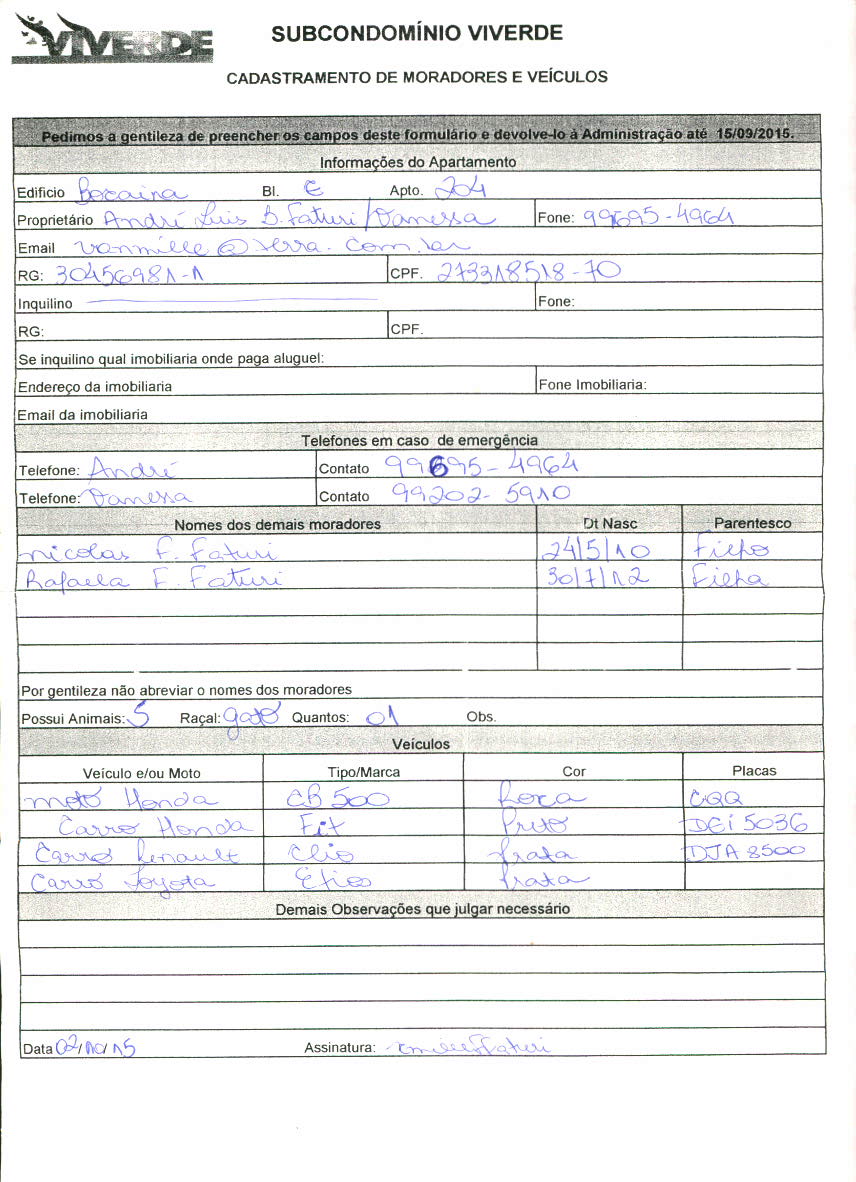 VIVERDE
SUBCONDOMÍNIO VIVERDE
CADASTRAMENTO DE MORADORES E VEÍCULOS
Pedimos a gentileza de preencher os campos deste formulário e devolve-lo à Administração até 15/09/2015.
Informações do Apartamento
Edificio Bocaina Bl. E Apto. 204
Proprietário André Luis B. Faturi/Vanessa Fone: 99695-4964
Email vanmille@terra.com.br
RG: 30456981-1 CPF. 273318518-70
Inquilino Fone:
RG: CPF.
Se inquilino qual imobiliaria onde paga aluguel:
Endereço da imobiliaria Fone Imobiliaria:
Email da imobiliaria
Telefones em caso de emergência
Telefone: André Contato 99695-4964
Telefone: Vanessa Contato 99202-5910
Nomes dos demais moradores Dt Nasc Parentesco
Nicolas F. Faturi 24/5/10 Filho
Rafaela F. Faturi 30/7/12 Filha
Por gentileza não abreviar o nomes dos moradores
Possui Animais: S Raçal: gato Quantos: 01 Obs.
Veículos
Veículo e/ou Moto Tipo/Marca Cor Placas
Moto Honda CB 500 CQQ
Carro Honda Fit Preto DEI 5036
Carro Renault Clio Prata DJA 8500
Carro Toyota Etios Prata
Demais Observações que julgar necessário
Data 02/10/15 Assinatura: Faturi